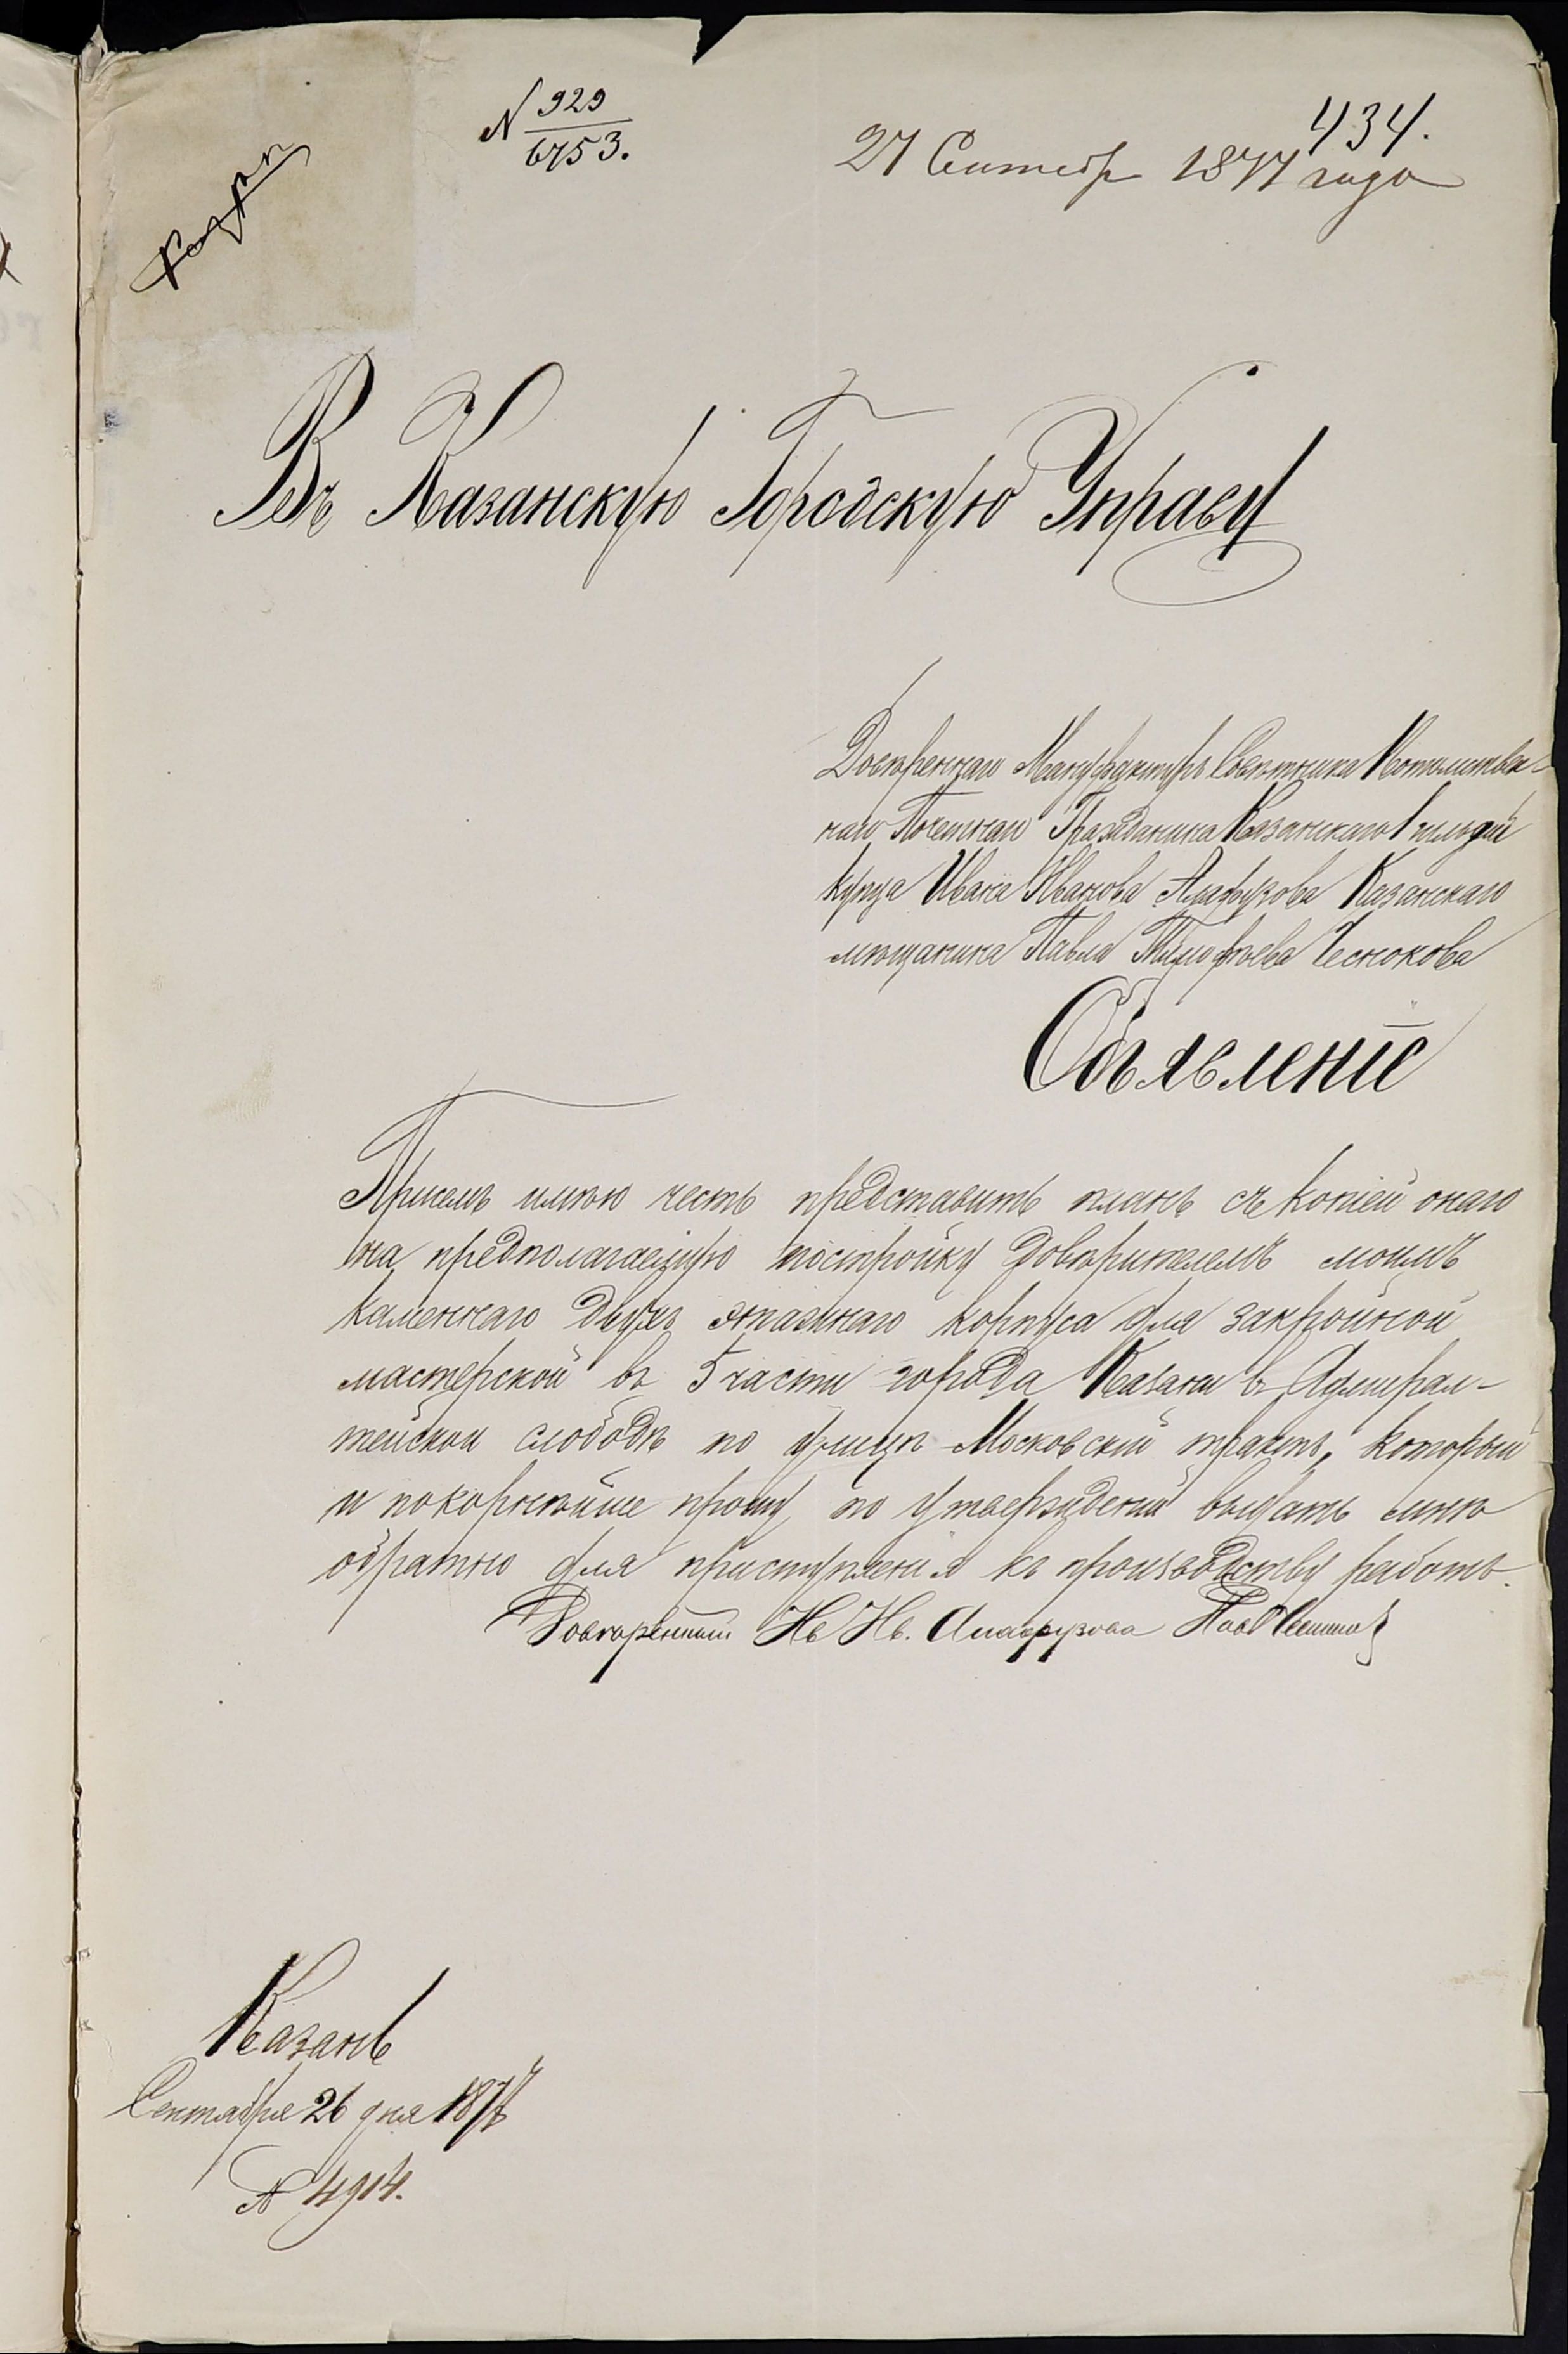 434.
N 929
6753.
27 Сентябр 1877 года
Въ Казанскую Городскую Управу
Довѣреннаго Мануфактуръ Совѣтника Потомствен-
наго Почетнаго Гражданина Казанскаго 1 гильдии
купца Ивана Иванова Алафузова Казанскаго
мѣщанина Павла Тимофѣева Чеснокова
Объявленіе
При семъ имѣю честь представить планъ съ копіей онаго
на предполагаемую постройку довѣрителемъ моимъ
каменнаго двухъ этажнаго корпуса для закройной
мастерской въ 5 части города Казани въ Адмирал-
тейской слободѣ по улицѣ Московскій трактъ, который
и покорнѣйше прошу по утвержденіи выдать мнѣ
обратно для приступленія къ производству работъ.
Довѣренный Ив Ив. Алафузова Пав Чесноков
Казань
Сентября 26 дня 1877
N 4914.